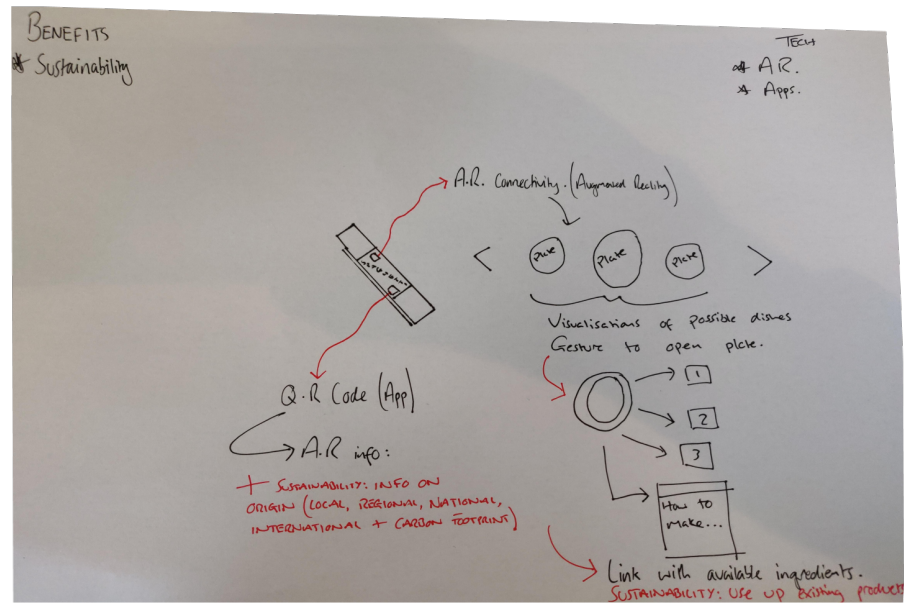 BENEFITS
* Sustainability
TECH
* A.R.
* Apps.
A.R. Connectivity. (Augmented Reality)
< plate plate plate >
Visualisations of possible dishes
Gesture to open plate.
1
2
3
How to
make...
Q.R Code (App)
A.R info:
+ SUSTAINABILITY: INFO ON
ORIGIN (LOCAL, REGIONAL, NATIONAL,
INTERNATIONAL + CARBON FOOTPRINT)
Link with available ingredients.
SUSTAINABILITY: USE UP EXISTING PRODUCTS